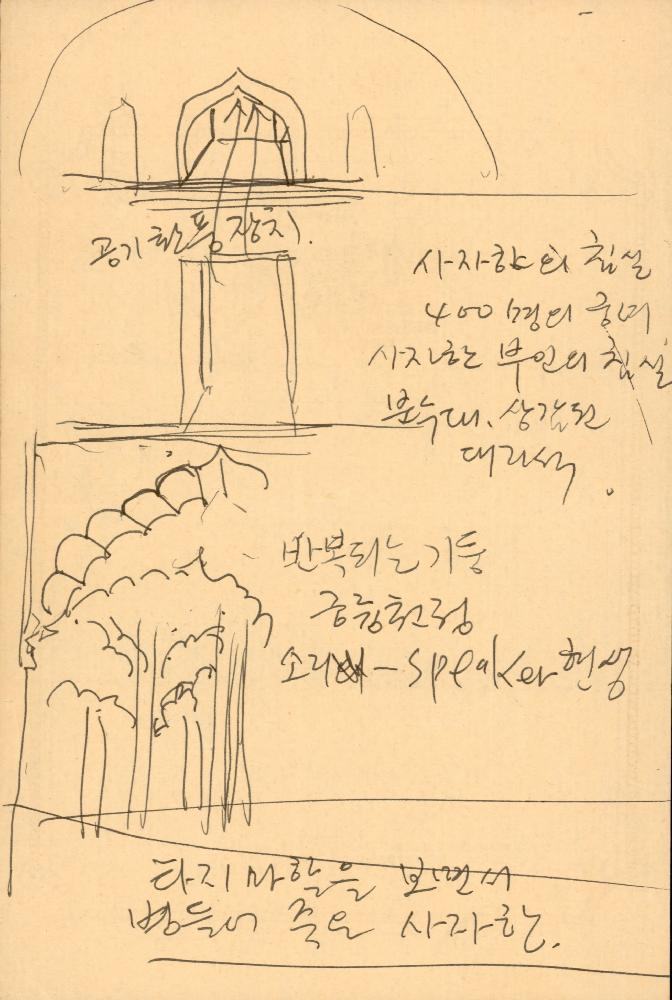 공기 환풍장치.
사자한의 침실
400명의 궁녀
사자한 부인의 침실
분수대. 상감된
대리석.
반복되는 기둥
궁륭천정
소리 - Speaker 현상
타지마할을 보면서
병들어 죽은 사자한.